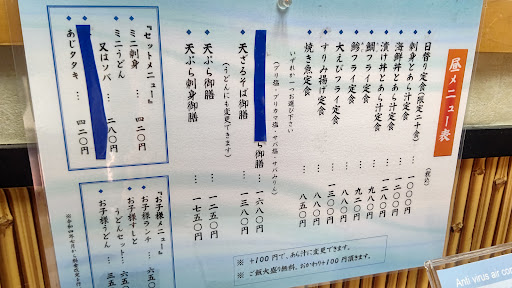 昼メニュー表
(税込)
日替り定食(限定二十食) … 一〇〇〇円
刺身とあら汁定食
海鮮丼とあら汁定食
漬け丼とあら汁定食
鯛フライ定食
鯵フライ定食
大えびフライ定食
すりみ揚げ定食
焼き魚定食 … 八五〇円
いずれか一つお選び下さい
(ブリ塩・ブリカマ塩・サバ塩・サバみりん)
御膳 … 一六八〇円
天ざるそば御膳 … 一三八〇円
(うどんにも変更できます)
天ぷら御膳 … 一二五〇円
天ぷら刺身御膳 … 一七五〇円
※ +100円で、あら汁に変更できます。
※ ご飯大盛り無料、おかわり+100円頂きます。
『セットメニュー』
ミニ刺身 … 四二〇円
ミニうどん
又はソバ … 二八〇円
あじタタキ … 四二〇円
『お子様メニュー』
お子様ランチ … 六五〇円
お子様すしと
うどんセット … 六五〇円
お子様うどん … 三五
Anti virus air co